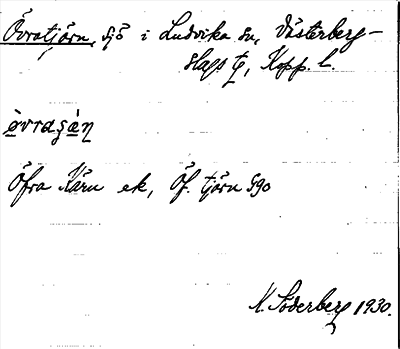 Övratjärn, sjö i Ludvika sn, Västerberg-
slags tg, Kopp. l.
Öfra Kärn ek, Öf. tjörn
N. Söderberg 1930.